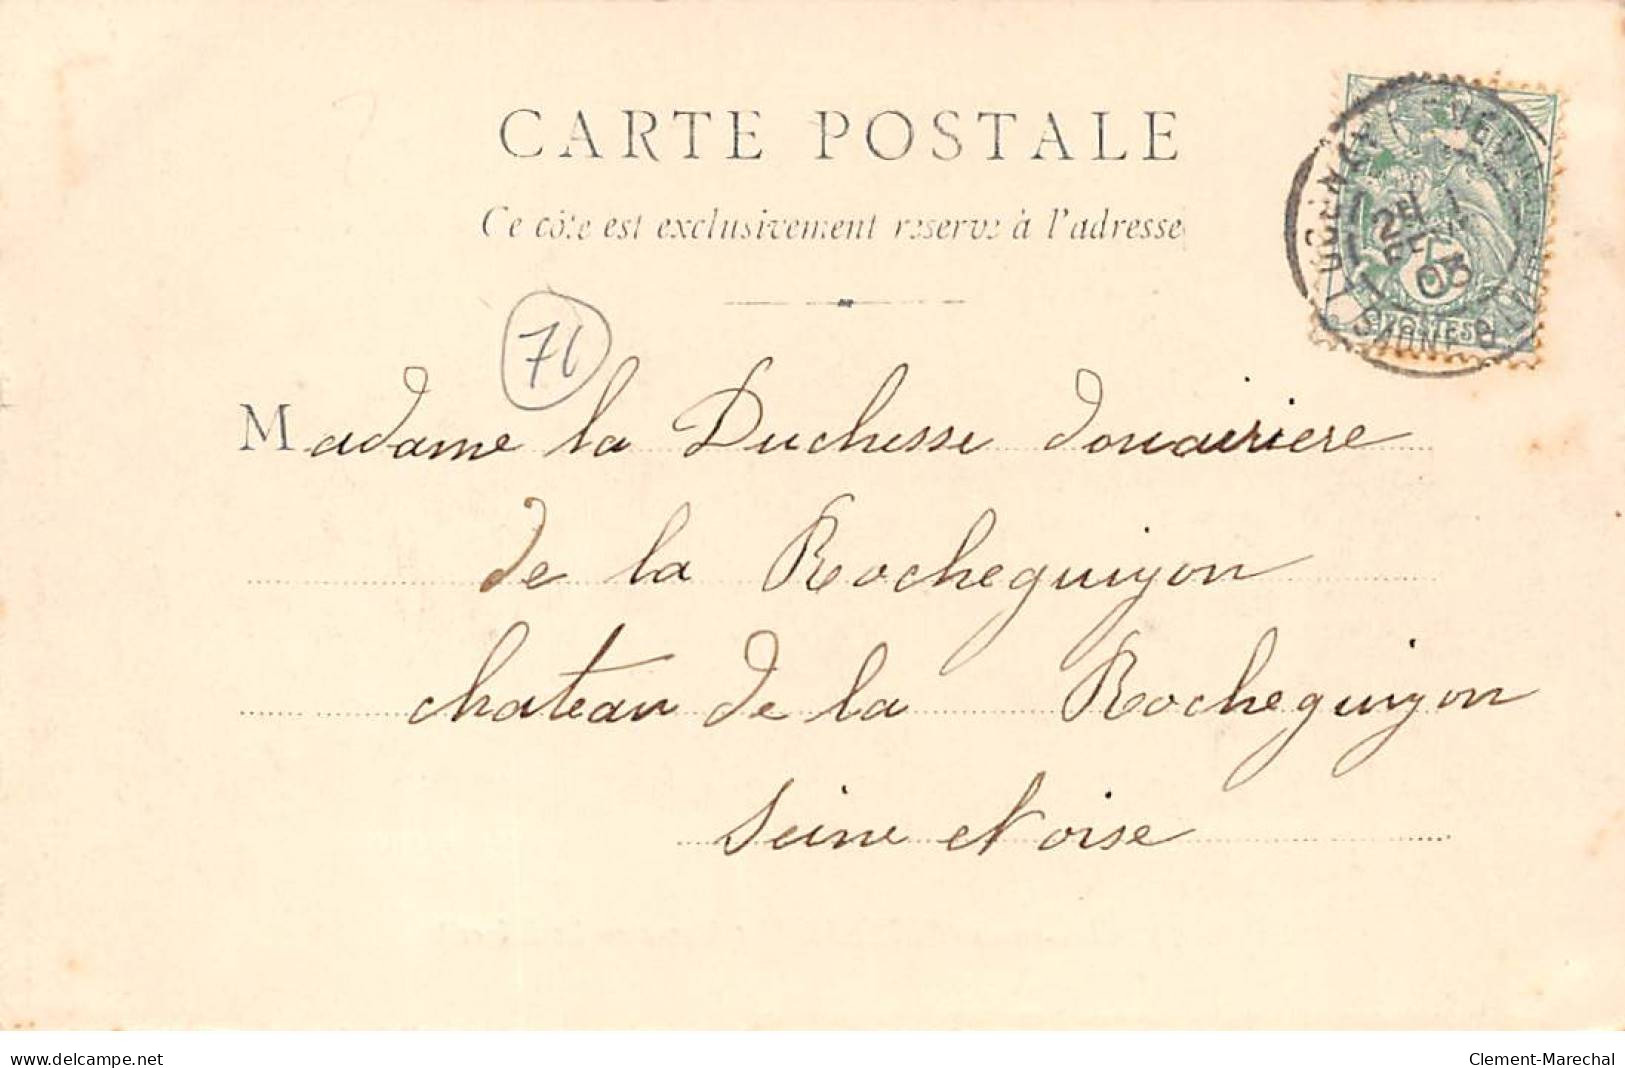 CARTE POSTALE
Ce côté est exclusivement réservé à l'adresse
71
Madame la Duchesse douairiere
de la Rocheguiyon
chateau de la Rocheguiyon
Seine et oise
5
POSTES
03
www.delcampe.net
Clement-Marechal